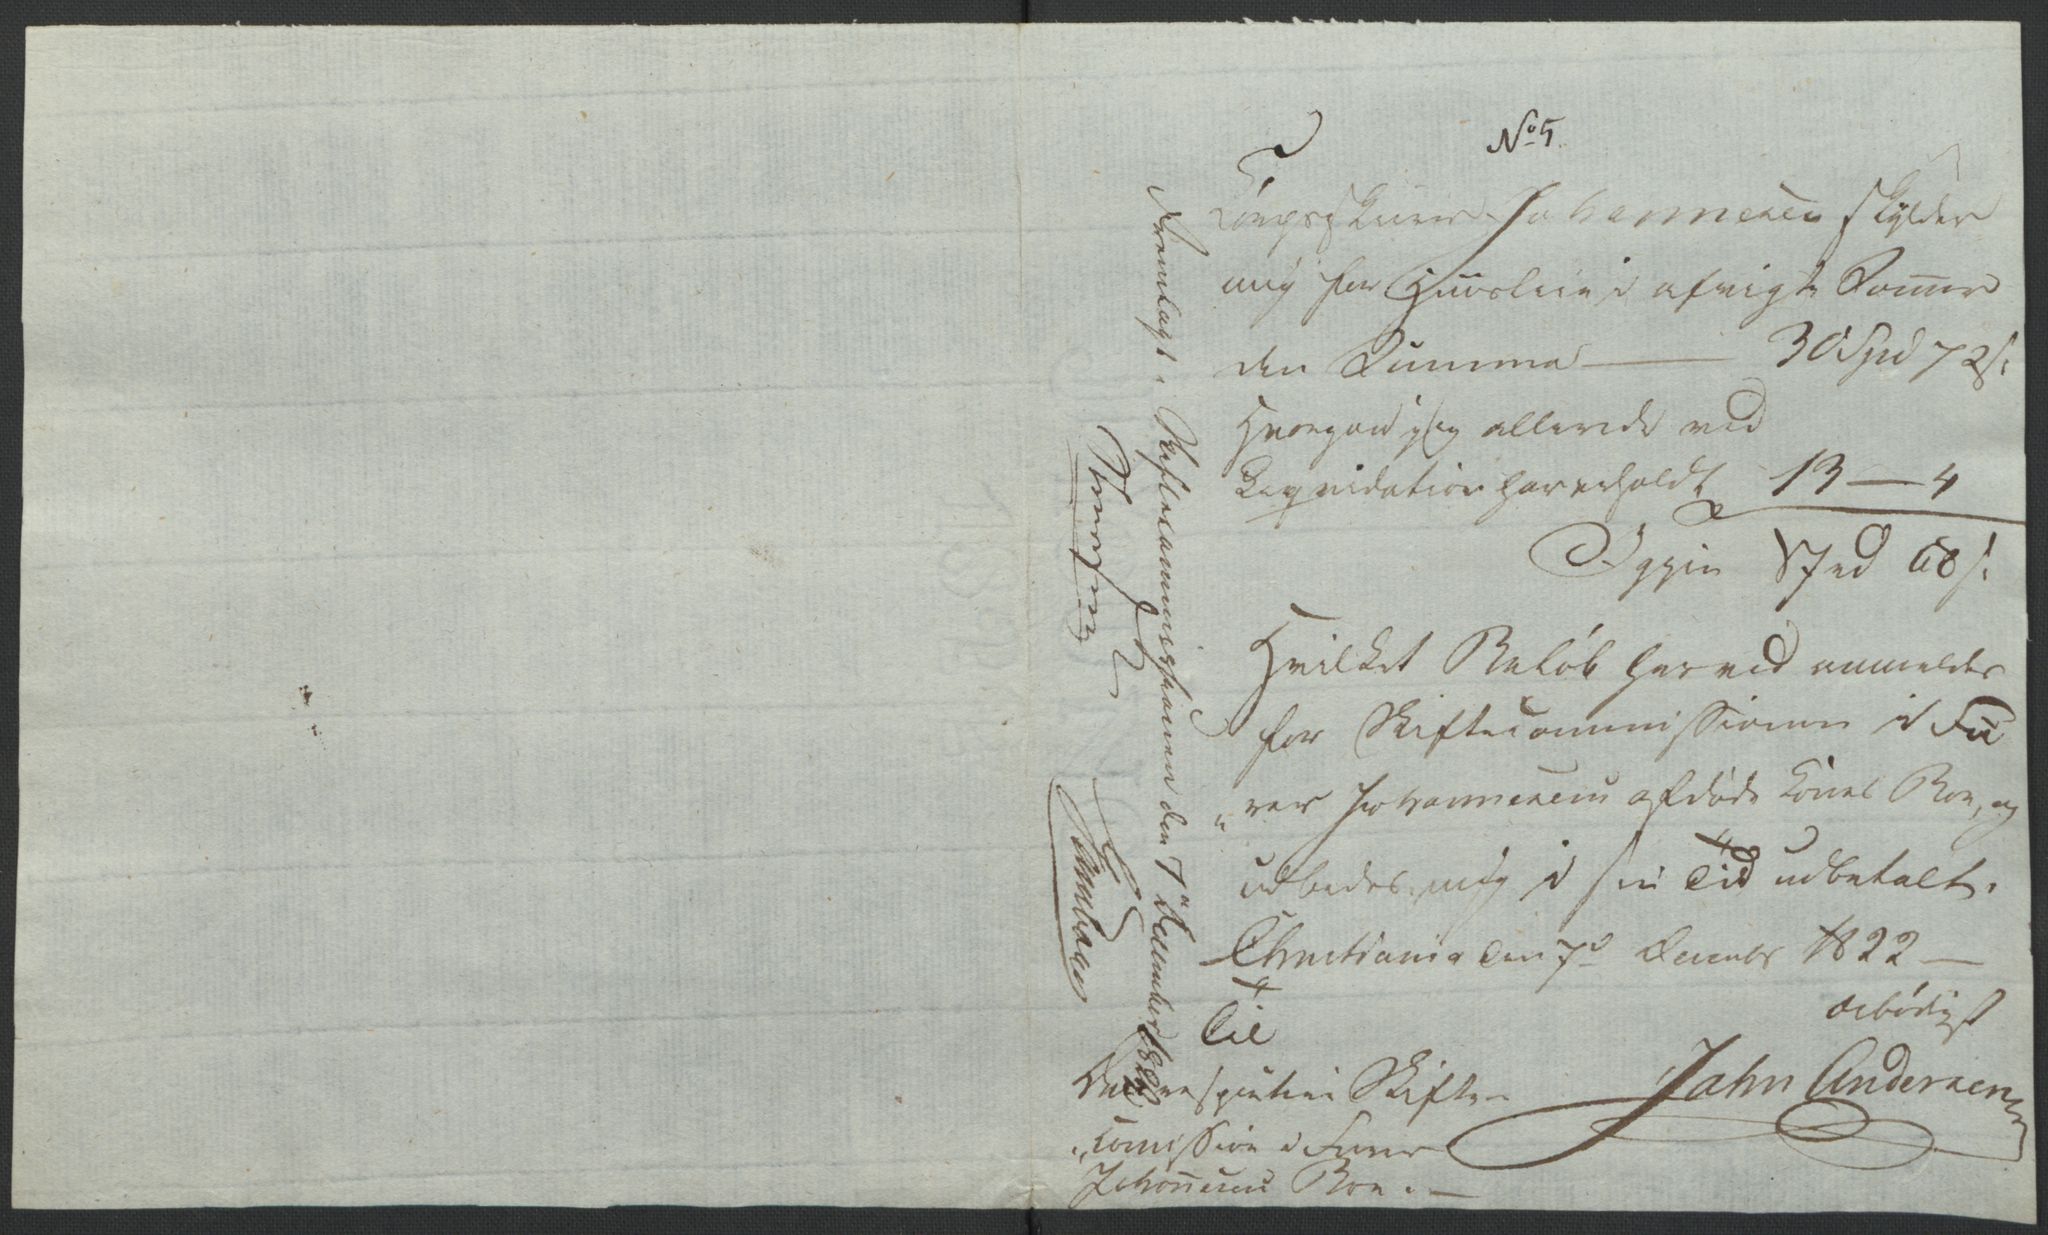 No 5.
Johannesen skylder
mig for Huusleie i afvigte Sommer
den Summa — 30 Spd 72 s:
Hvorpaa jeg allerede ved
Liqvidation har erholdt 13 — 4
Igjen 17 Spd 68 s:
Hvilket Beløb herved anmeldes
for Skiftecommissionen i Fu
„rer Johannesens afdøde Kones Boe, og
udbedes mig i sin Tid udbetalt.
Christiania den 7d Decembr 1822 —
ærbødigst
John Andersen
Til
Den respective Skifte-
„comission i Furer
Johannesens Boe. —
Fremlagt i Skiftecommissionen den 7de December 1822